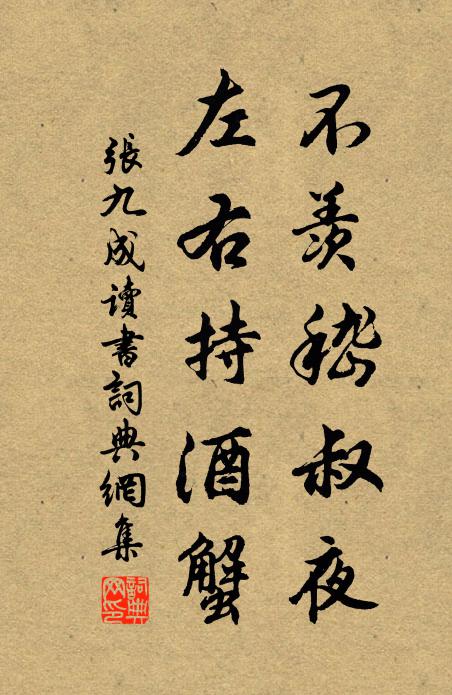 不羡嵇叔夜
左右持酒蟹
張九成讀書詞典網集
詞典網印